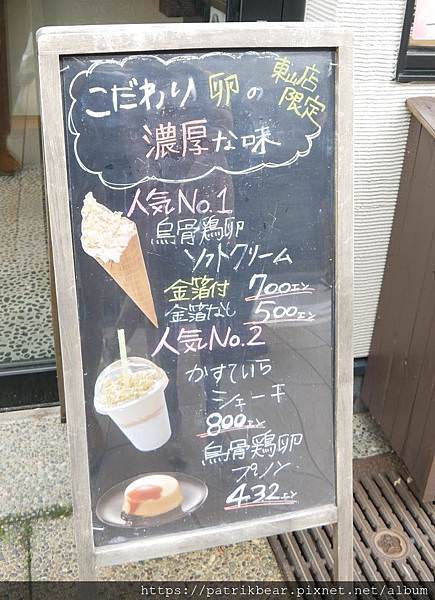 東山店
限定
こだわり卵の
濃厚な味
人気No.1
烏骨鶏卵
ソフトクリーム
金箔付 700エン
金箔なし 500エン
人気No.2
かすてぃら
シェーキ
800エン
烏骨鶏卵
プリン
432エン
https://patrikbear.pixnet.net/album